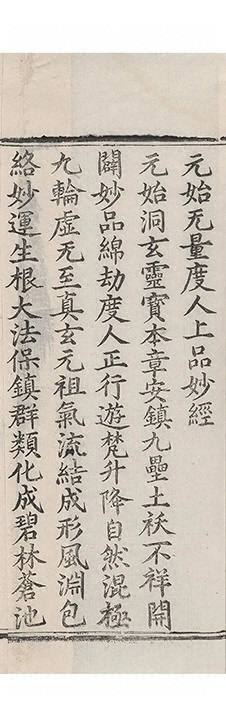 元始无量度人上品妙經
元始洞玄靈寶本章安鎮九壘土祅不祥開
闢妙品綿劫度人正行遊梵升降自然混極
九輪虛无至真玄元祖氣流結成形風淵包
絡妙運生根大法保鎮群類化成碧林蒼池